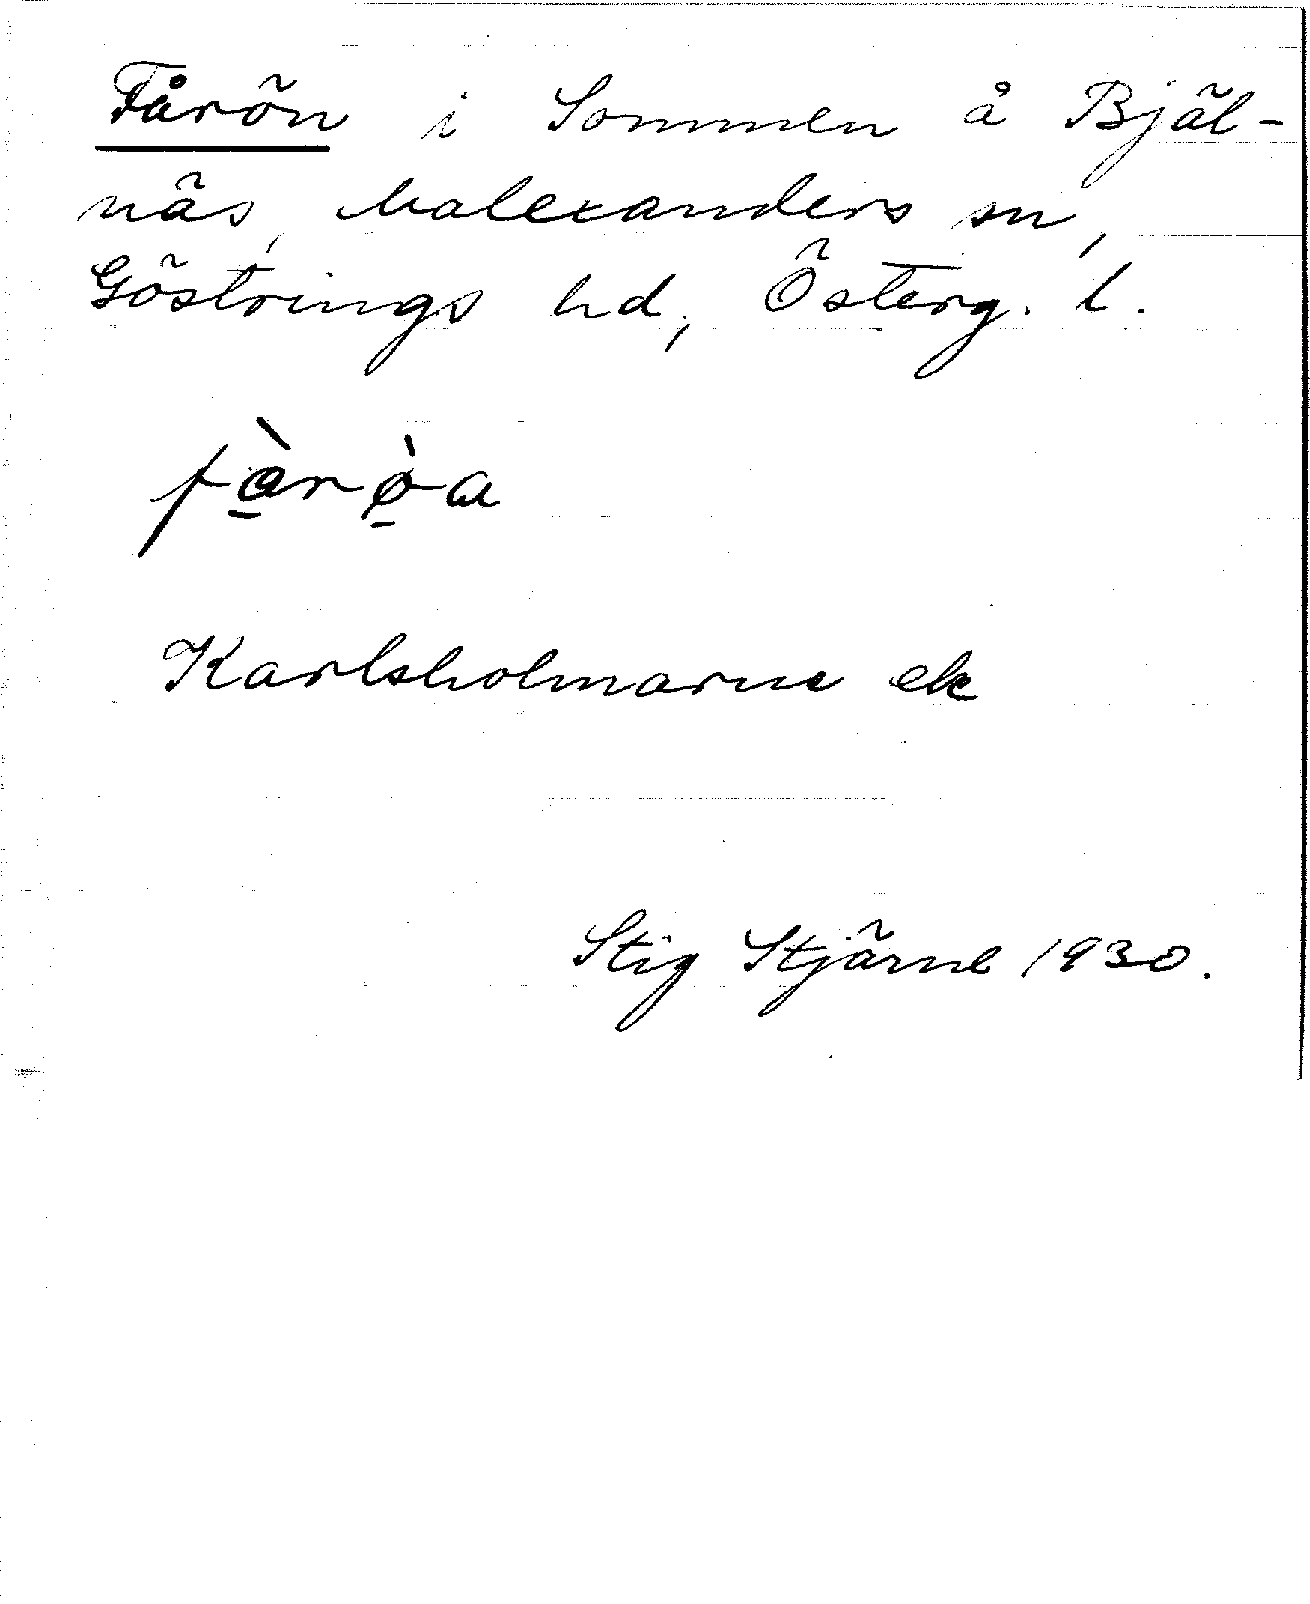 Fårön i Sommen å Bjäl-
näs, Malexanders sn,
Göstrings hd, Österg. l.
fàròa
Karlsholmarne ek
Stig Stjärne 1930.